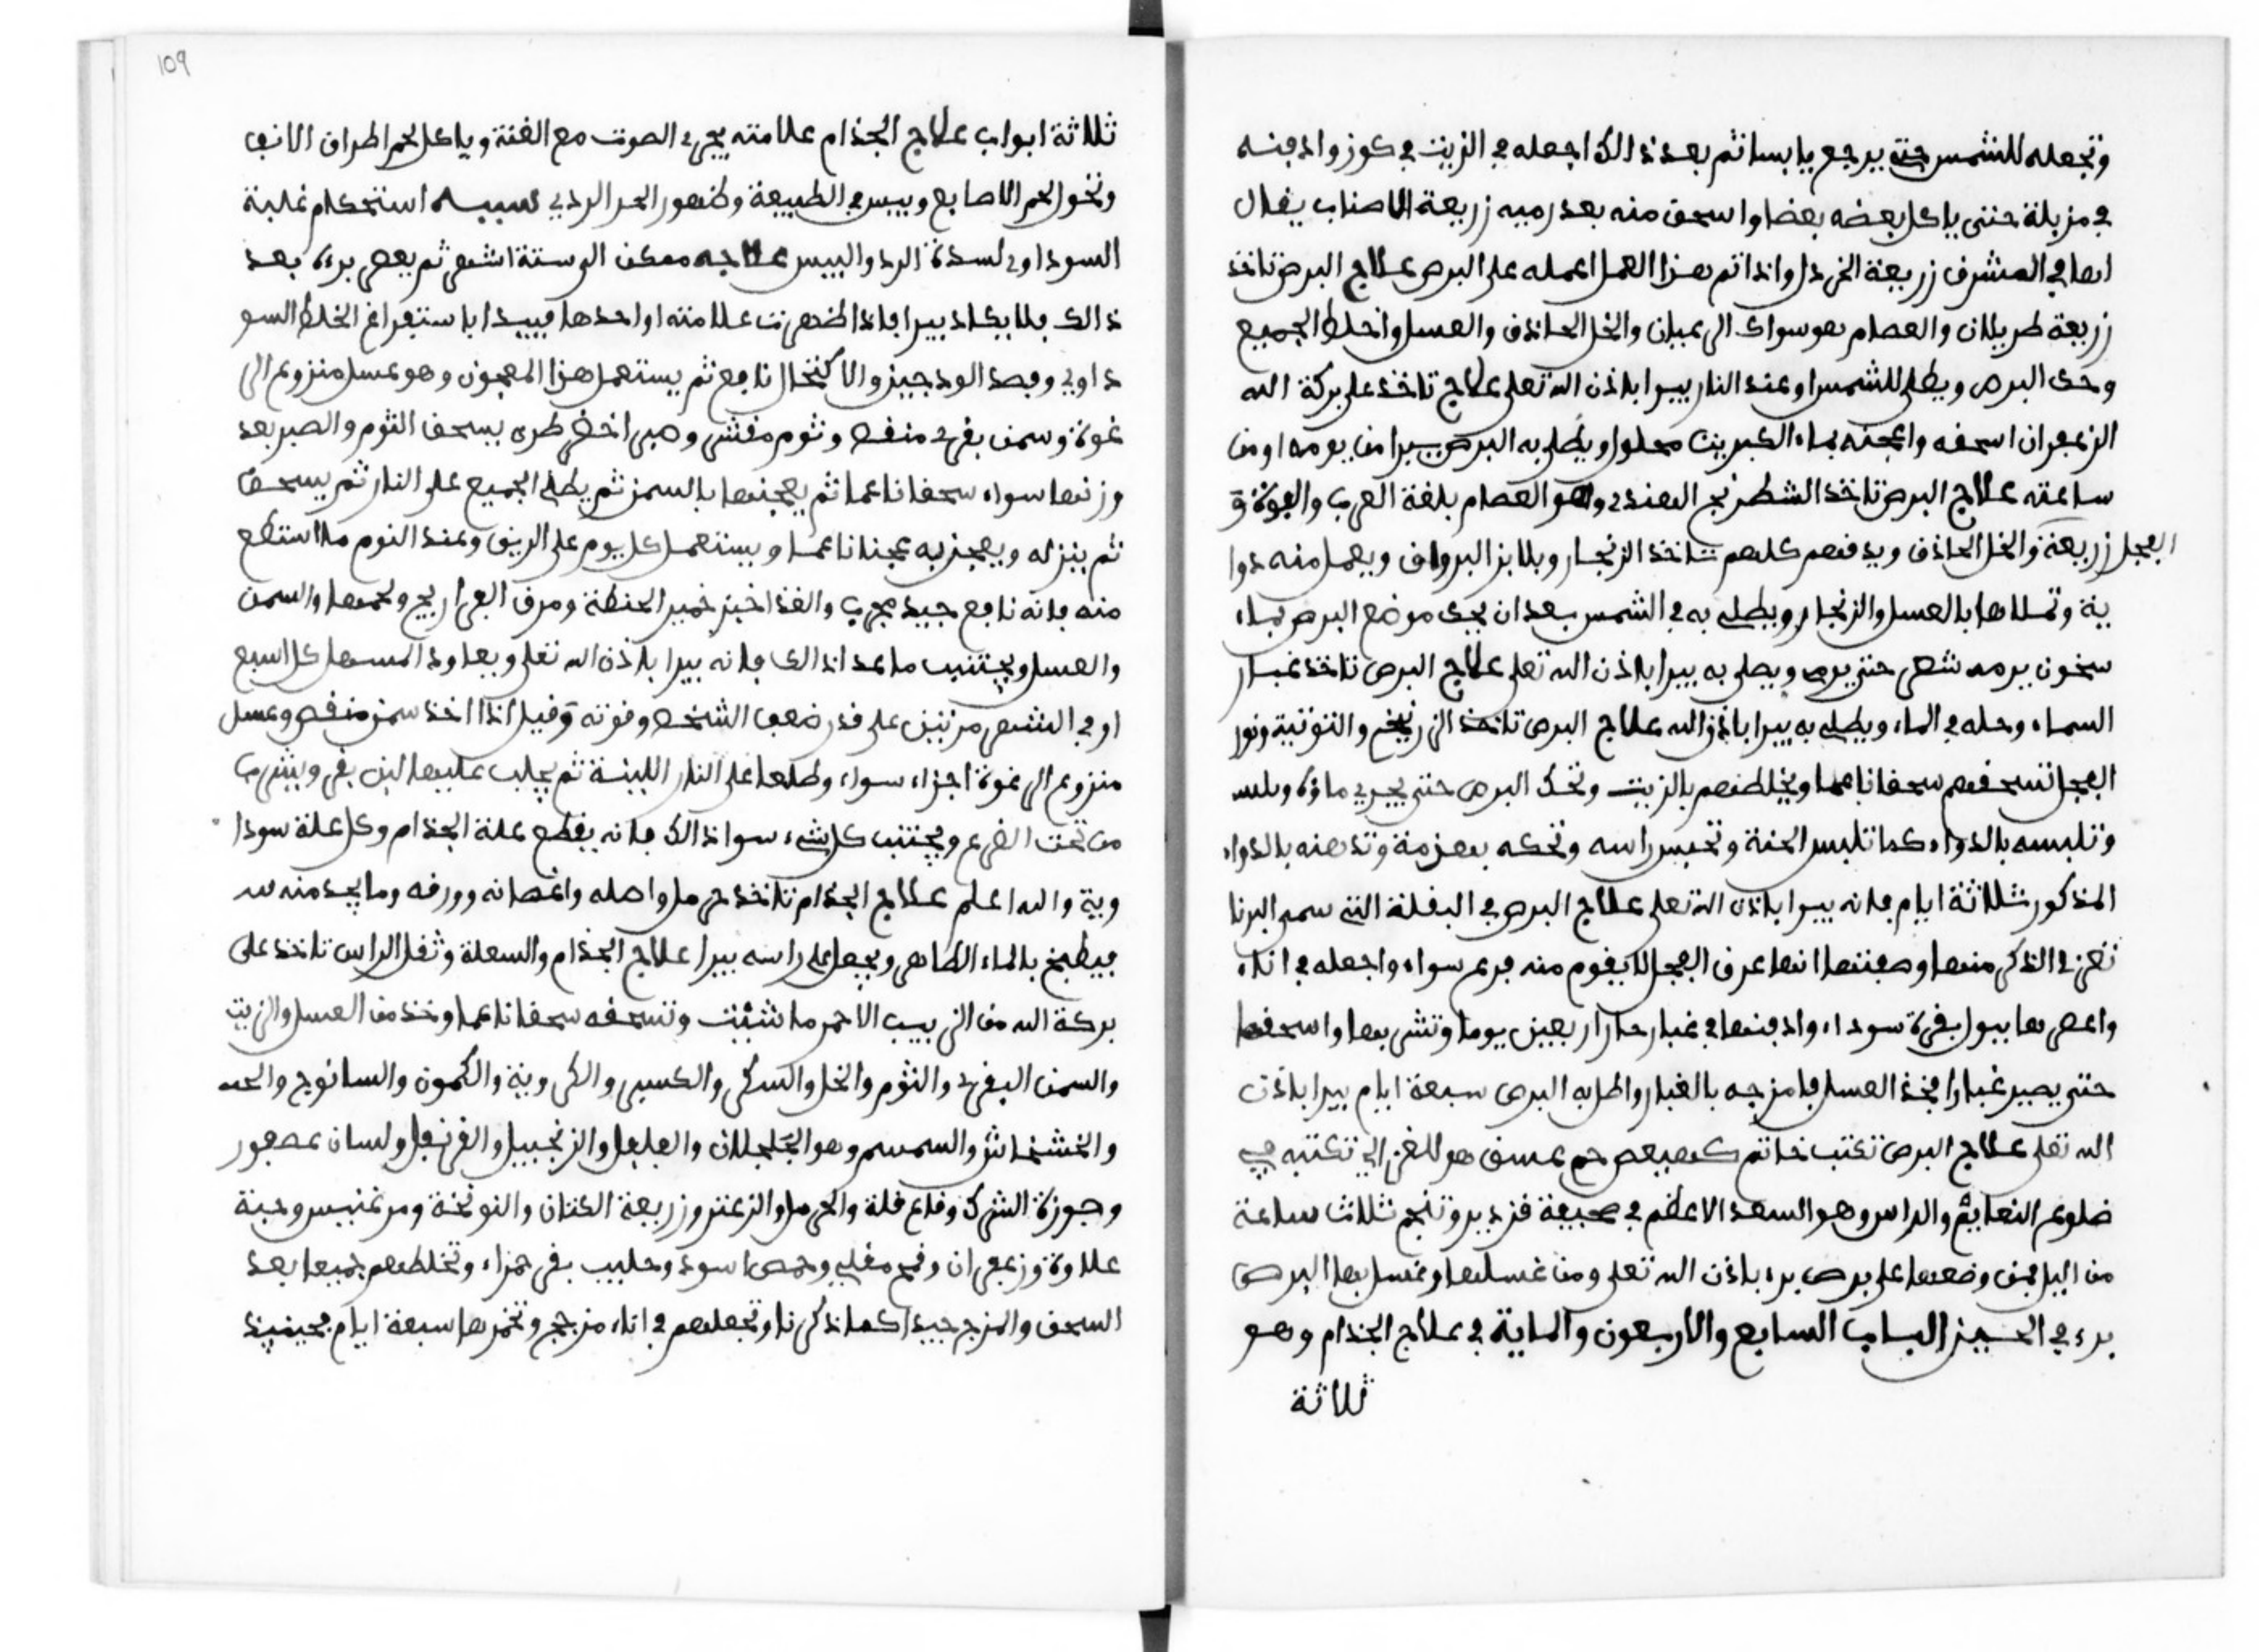 وتجعله للشمس حتى يرجع يابسا ثم بعد ذالك اجعله في الزيت في كوز وادفنه
في مزبلة حتى ياكل بعضه بعضا واسحق منه بعد رميه زريعة الاصناب يقال
لها في المشرق زريعة الخردل واذا تم هذا العمل اعمله على البرص علاج البرص تاخذ
زريعة طريلان والعصاب هو سواك الرعيان والخل الحاذق والعسل واخلط الجميع
وحك البرص ويطلى للشمس او عند النار يبرا باذن الله تعلى علاج تاخذ على بركة الله
الزعفران اسحقه واعجنه بماء الكبريت محلول ويطلى به البرص يبرا من يومه او من
ساعته علاج البرص تاخذ الشطرنج الهندي وهو العصاب بلغة العرب والفوة و
الفجل زريعة والخل الحاذق ويدقهم كلهم تاخذ الزنجار وبلابز البرواق ويعمل منه دوا
ية وتملاها بالعسل والزنجار ويطلى به في الشمس بعد ان يحك موضع البرص بماء
سخون يرمه شعر حتى يرم ويطلى به يبرا باذن الله تعلى علاج البرص تاخذ غبار
السماء وحله في الماء ويطلى به يبرا باذن الله علاج البرص تاخذ الزرنيخ والتوتية ونور
الفجل تسحقهم سحقا ناعما ويخلطهم بالزيت وتحك البرص حتى يجري ماؤه
وتلبسه بالدواء كما تلبس الحنة وتحبس راسه وتحكه بعزمة وتدهنه بالدواء
المذكور ثلاثة ايام فانه يبرا باذن الله تعلى علاج البرص في البقلة التي سمى البرنا
تقزر الذكر منها وصفتها انها عرق الفجل لا يقوم منه فرع سواه واجعله في اناء
واعصرها ببول بقرة سوداء وادفنها في غبار حار اربعين يوما وتشربها واسحقها
حتى يصير غبارا فخذ العسل فامزجه بالغبار واطل به البرص سبعة ايام يبرا باذن
الله تعلى علاج البرص تكتب خاتم كهيعص حم عسق هو للغزالي تكتبه في
ضلوع الثعابين والراس وهو السعد الاعظم في صحيفة قزدير وتنجم ثلاث ساعة
من اليل فمن وضعها على برص برء باذن الله تعلى ومن غسلها وغسل بها البرص
برء في الحين الباب السابع والاربعون والماية في علاج الجذام وهو
ثلاثة
109
ثلاثة ابواب علاج الجذام علامته يجيء الصوت مع الغنة وياكل لحم اطراف الانف
ونحو لحم الاصابع ويبس في الطبيعة وظهور الحر الردي سببه استحكام غلبة
السوداوي لسدة البرد واليبس علاجه ممكن الى ستة اشهر ثم يعصر برءه بعد
ذالك فلا يكاد يبرا فاذا ظهرت علاماته او احدها فيبدا باستفراغ الخلط السو
داوي وفصد الودجين والاكتحال نافع ثم يستعمل هذا المعجون وهو عسل منزوع الر
غوة وسمن بقري منقى وثوم مقشر وصبر اخضر طري يسحق الثوم والصبر بعد
وزنها سواء سحقا ناعما ثم يعجنها بالسمن ثم يطلى الجميع على النار ثم يسحق
ثم ينزله ويعجن به عجنا ناعما ويستعمل كل يوم على الريق وعند النوم ما استطع
منه فانه نافع جيد مجرب والغذا خبز خمير الحنطة ومرق الفراريج ولحمها والسمن
والعسل ويجتنب ما عدا ذالك فانه يبرا باذن الله تعلى ويعاود المسهل كل اسبع
او في الشهر مرتين على قدر ضعف الشخص وقوته وقيل اذا اخذ سمن منقى وعسل
منزوع الرغوة اجزاء سواء وطلعا على النار اللينة ثم يحلب عليها لبن بقر ويشرب
من تحت الضرع ويجتنب كل شيء سوا ذالك فانه يقطع علة الجذام وكل علة سودا
وية والله اعلم علاج الجذام تاخذ حرمل واصله واغصانه وورقه وما يجد منه
فيطبخ بالماء الطاهر ويجعل على راسه يبرا علاج الجذام والسعلة وثقل الراس تاخذ على
بركة الله من الزبيب الاحمر ما شئت وتسحقه سحقا ناعما وخذ من العسل والزيت
والسمن البقري والثوم والخل والسكر والكسبر والكروية والكمون والسانوج والحبه
والخشخاش والسمسم وهو الجلجلان والفلفل والزنجبيل والقرنفل ولسان عصفور
وجوزة الشرك وقاع قلة والحرمل والزعتر وزريعة الكتان والنوخة ومرغنيس وحبة
علاوة وزعفران وقمح مقلي وحمص اسود وحليب بقر حمراء وتخلطهم جميعا بعد
السحق والمزج جيدا كما ذكرنا وتجعلهم في اناء مزجج وتخمرها سبعة ايام فحينيذ